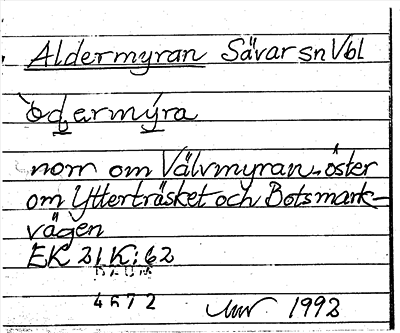 Aldermyran Sävar sn Vbl
òdermýra
norr om Välvmyran, öster
om Ytterträsket och Botsmark-
vägen
EK 21 K: 62
4672 1992